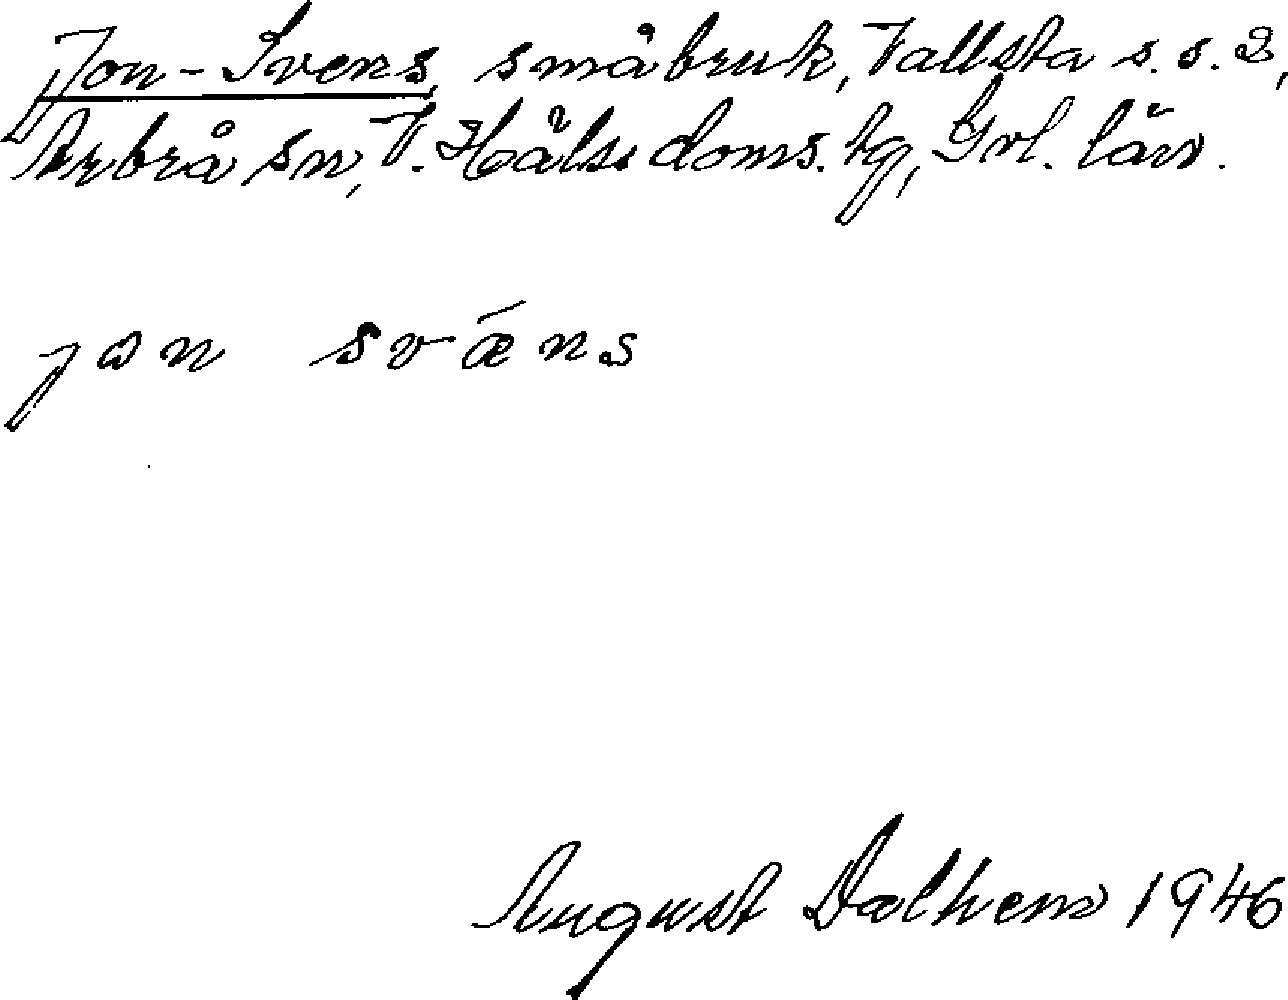 Jon-Svens, småbruk, Vallsta s.s. 2,
Arbrå sn, V. Häls. doms. tg, Gvl. län.
jon svǽns
August Dalhem 1946